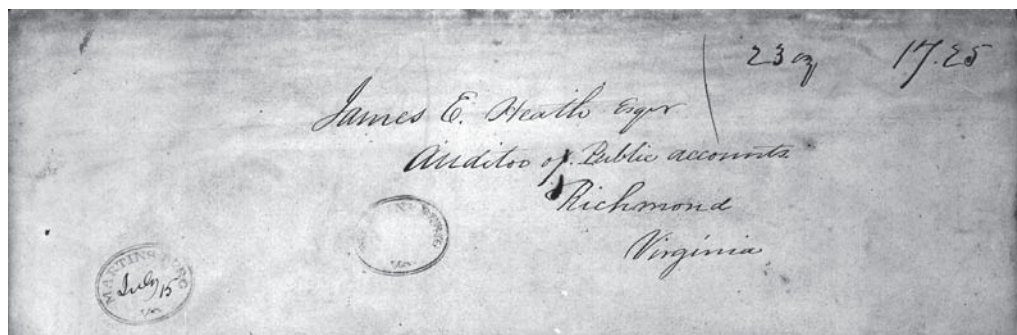 23 oz 17.25
James E. Heath Esqr
Auditor of Public accounts
Richmond
Virginia
MARTINSBURG
July 15
Va